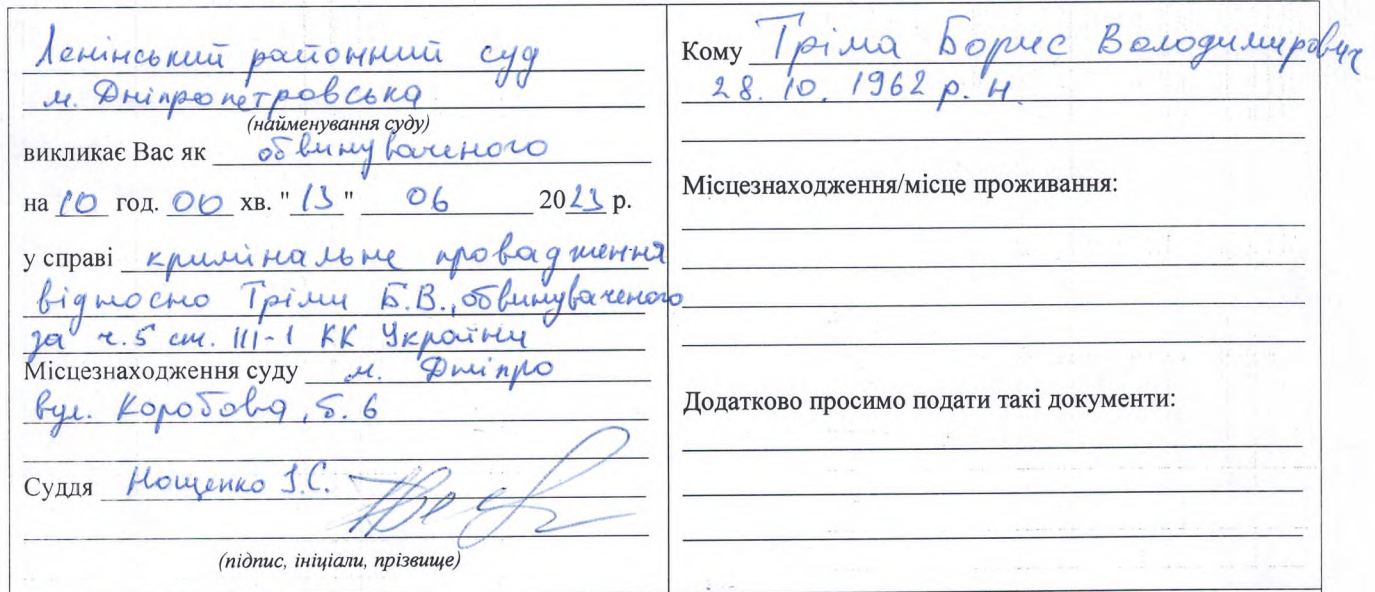 Ленінський районний суд
м. Дніпропетровська
(найменування суду)
викликає Вас як обвинуваченого
на 10 год. 00 хв. "13" 06 2023 р.
у справі кримінальне провадження
відносно Тріми Б.В., обвинуваченого
за ч.5 ст. 111-1 КК України
Місцезнаходження суду м. Дніпро
вул. Коробова, б. 6
Суддя Нощенко І.С.
(підпис, ініціали, прізвище)
Кому Тріма Борис Володимирович
28.10.1962 р.н.
Місцезнаходження/місце проживання:
Додатково просимо подати такі документи: